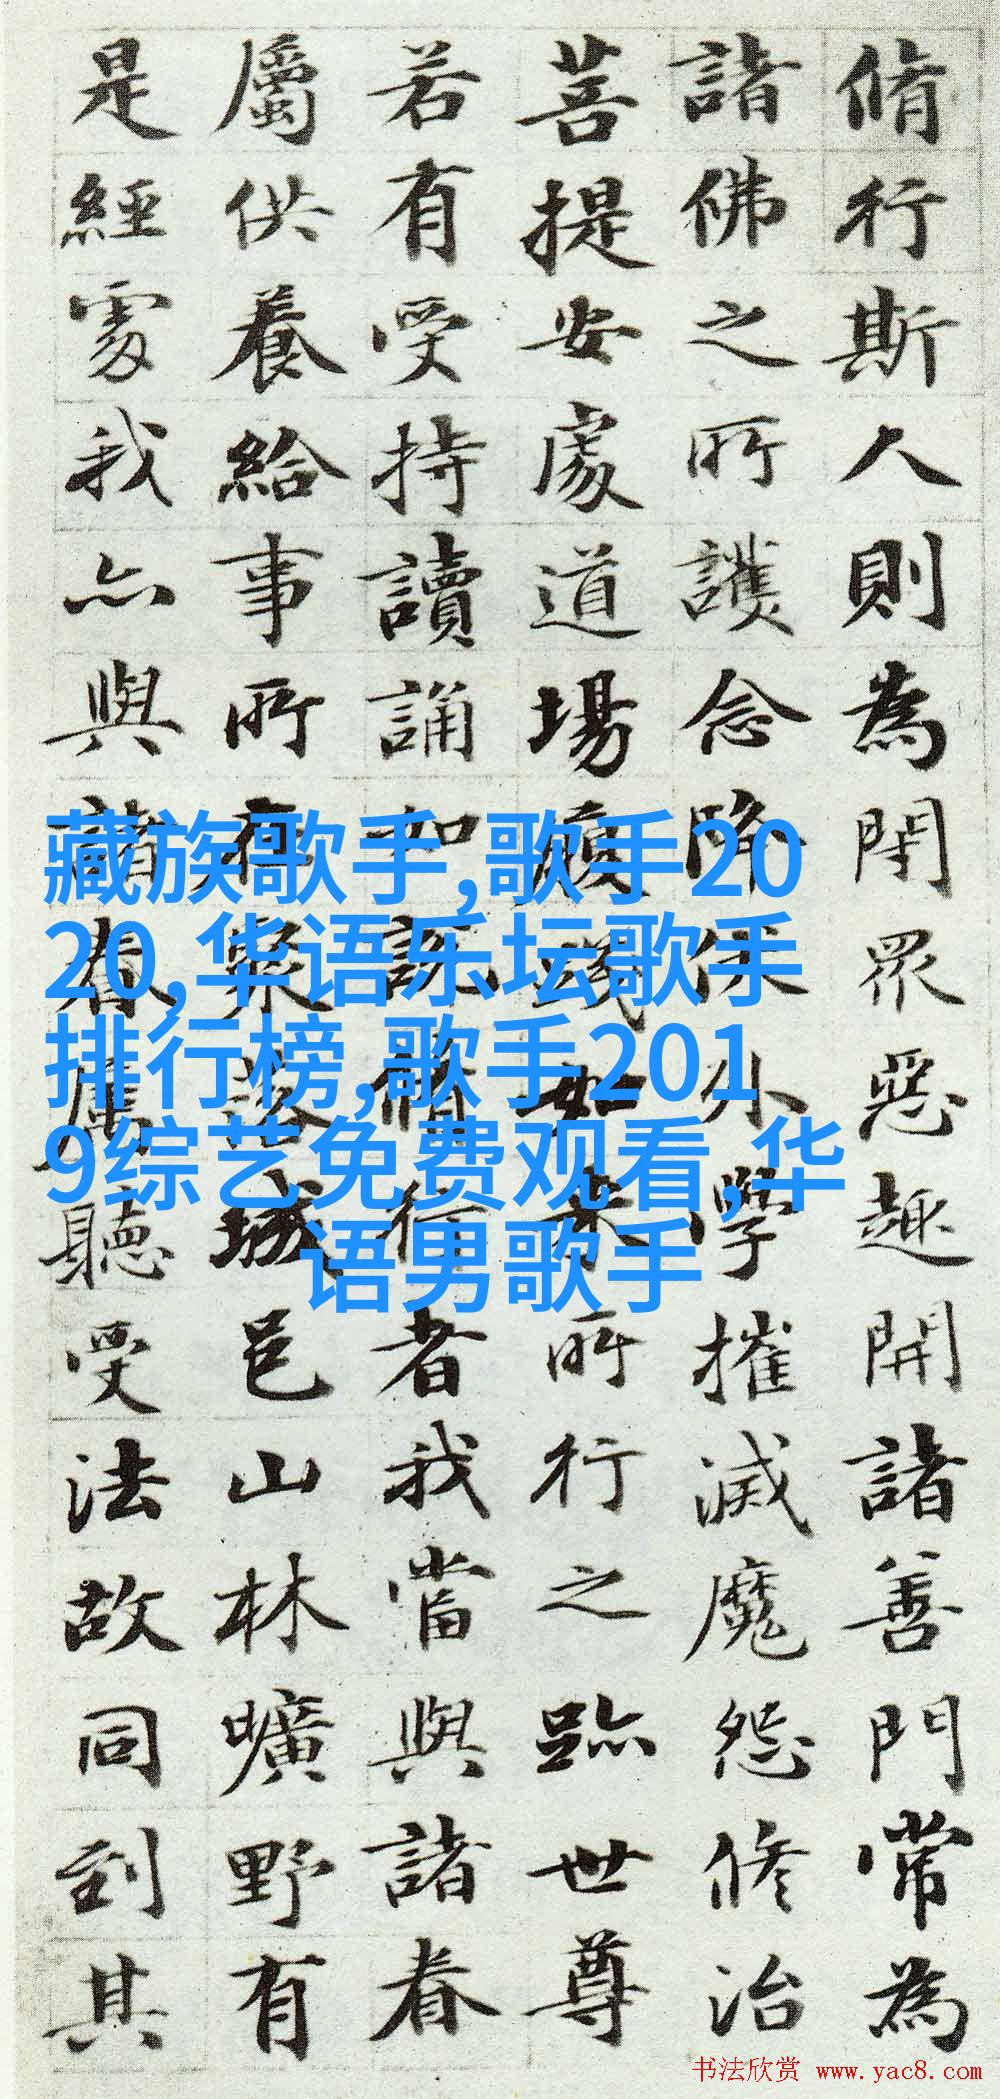 脩行斯人則為閇眾惡趣開諸善門常為
諸佛之所護念降伏外學摧滅魔怨修治
菩提安處道場履踐如來所行之跡世尊
若有受持讀誦如說脩行者我當與諸眷
屬供養給事所在聚落城邑山林曠野有
是經處我亦與諸眷屬聽受法故同到其
藏族歌手,歌手20
20,华语乐坛歌手
排行榜,歌手201
9综艺免费观看,华
语男歌手
书法欣赏 www.yac8.com